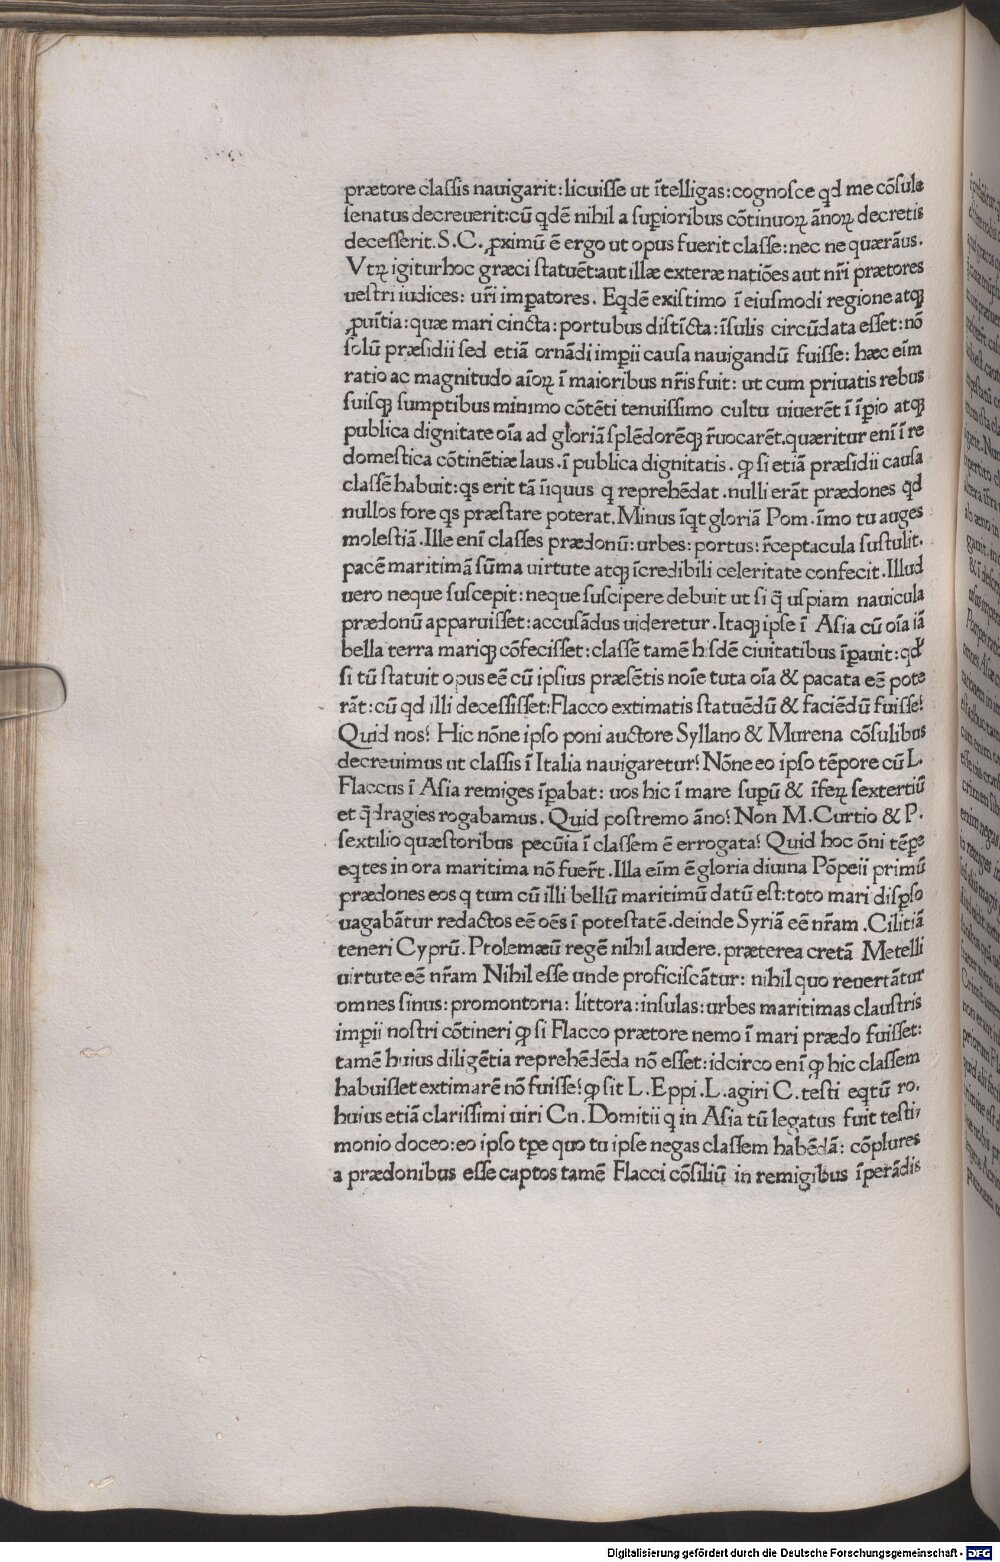 prætore claſſis nauigarit:licuiſſe ut ĩtelligas:cognoſce qd me cõſule
ſenatus decreuerit:cũ qdẽ nihil a ſup̱ioribus cõtinuoꝝ ãnoꝝ decretis
deceſſerit.S.C.ꝓximũ ẽ ergo ut opus fuerit claſſe:nec ne quærãus.
Vtꝝ igitur hoc græci ſtatuẽt:aut illæ exteræ natiões aut nr̃i prætores
ueſtri iudices: ur̃i imp̱atores. Eqdẽ exiſtimo ĩ eiuſmodi regione atqꝫ
ꝓuĩtia:quæ mari cincta:portubus diſtĩcta:ĩſulis circũdata eſſet:nõ
ſolũ præſidii ſed etiã ornãdi imp̱ii cauſa nauigandũ fuiſſe: hæc eĩm
ratio ac magnitudo aĩoꝝ ĩ maioribus nr̃is fuit: ut cum priuatis rebus
ſuiſqꝫ ſumptibus minimo cõtẽti tenuiſſimo cultu uiuerẽt ĩ ĩp̱io atqꝫ
publica dignitate oĩa ad gloriã ſplẽdorẽqꝫ r̃uocarẽt.quæritur enĩ ĩ re
domeſtica cõtinẽtiæ laus.ĩ publica dignitatis. ꝙ ſi etiã præſidii cauſa
claſſẽ habuit:qs erit tã ĩiquus q reprehẽdat.nulli erãt prædones qd
nullos fore qs præſtare poterat.Minus ĩqt gloriã Pom.ĩmo tu auges
moleſtiã.Ille enĩ claſſes prædonũ:urbes:portus:r̃ceptacula ſuſtulit.
pacẽ maritimã ſũma uirtute atqꝫ ĩcredibili celeritate confecit.Illud
uero neque ſuſcepit:neque ſuſcipere debuit ut ſi q̃ uſpiam nauicula
prædonũ apparuiſſet:accuſãdus uideretur.Itaqꝫ ipſe ĩ Aſia cũ oĩa iã
bella terra mariqꝫ cõfeciſſet:claſſẽ tamẽ hiſdẽ ciuitatibus ĩp̱auit:qd
ſi tũ ſtatuit opus eẽ cũ ipſius præſẽtis noĩe tuta oĩa & pacata eẽ pote
rãt:cũ qd illi deceſſiſſet:Flacco extimatis ſtatuẽdũ & faciẽdũ fuiſſe?
Quid nos? Hic nõne ipſo poni auctore Syllano & Murena cõſulibus
decreuimus ut claſſis ĩ Italia nauigaretur? Nõne eo ipſo tẽpore cũ L.
Flaccus ĩ Aſia remiges ĩp̱abat: uos hic ĩ mare ſup̱ũ & ĩfeꝝ ſextertiũ
et q̃dragies rogabamus. Quid poſtremo ãno? Non M.Curtio & P.
ſextilio quæſtoribus pecũia ĩ claſſem ẽ errogata? Quid hoc õni tẽp̱e
eqtes in ora maritima nõ fuer̃t.Illa eĩm ẽ gloria diuina Põpeii primũ
prædones eos q tum cũ illi bellũ maritimũ datũ eſt:toto mari diſp̱ſo
uagabãtur redactos eẽ oẽs ĩ poteſtatẽ.deinde Syriã eẽ nr̃am.Cilitiã
teneri Cyprũ.Ptolemæũ regẽ nihil audere.præterea cretã Metelli
uirtute eẽ nr̃am Nihil eſſe unde proficiſcãtur: nihil quo reuertãtur
omnes ſinus:promontoria: littora:inſulas:urbes maritimas clauſtris
imp̱ii noſtri cõtineri ꝙ ſi Flacco prætore nemo ĩ mari prædo fuiſſet:
tamẽ huius diligẽtia reprehẽdẽda nõ eſſet:idcirco enĩ ꝙ hic claſſem
habuiſſet extimarẽ nõ fuiſſe?ꝙ ſit L.Eppi.L.agiri C.teſti eqtũ ro.
huius etiã clariſſimi uiri Cn.Domitii q in Aſia tũ legatus fuit teſti,
monio doceo:eo ipſo tp̱e quo tu ipſe negas claſſem habẽdã: cõplures
a prædonibus eſſe captos tamẽ Flacci cõſiliũ in remigibus ĩp̱erãdis
Digitalisierung gefördert durch die Deutsche Forschungsgemeinschaft - DFG